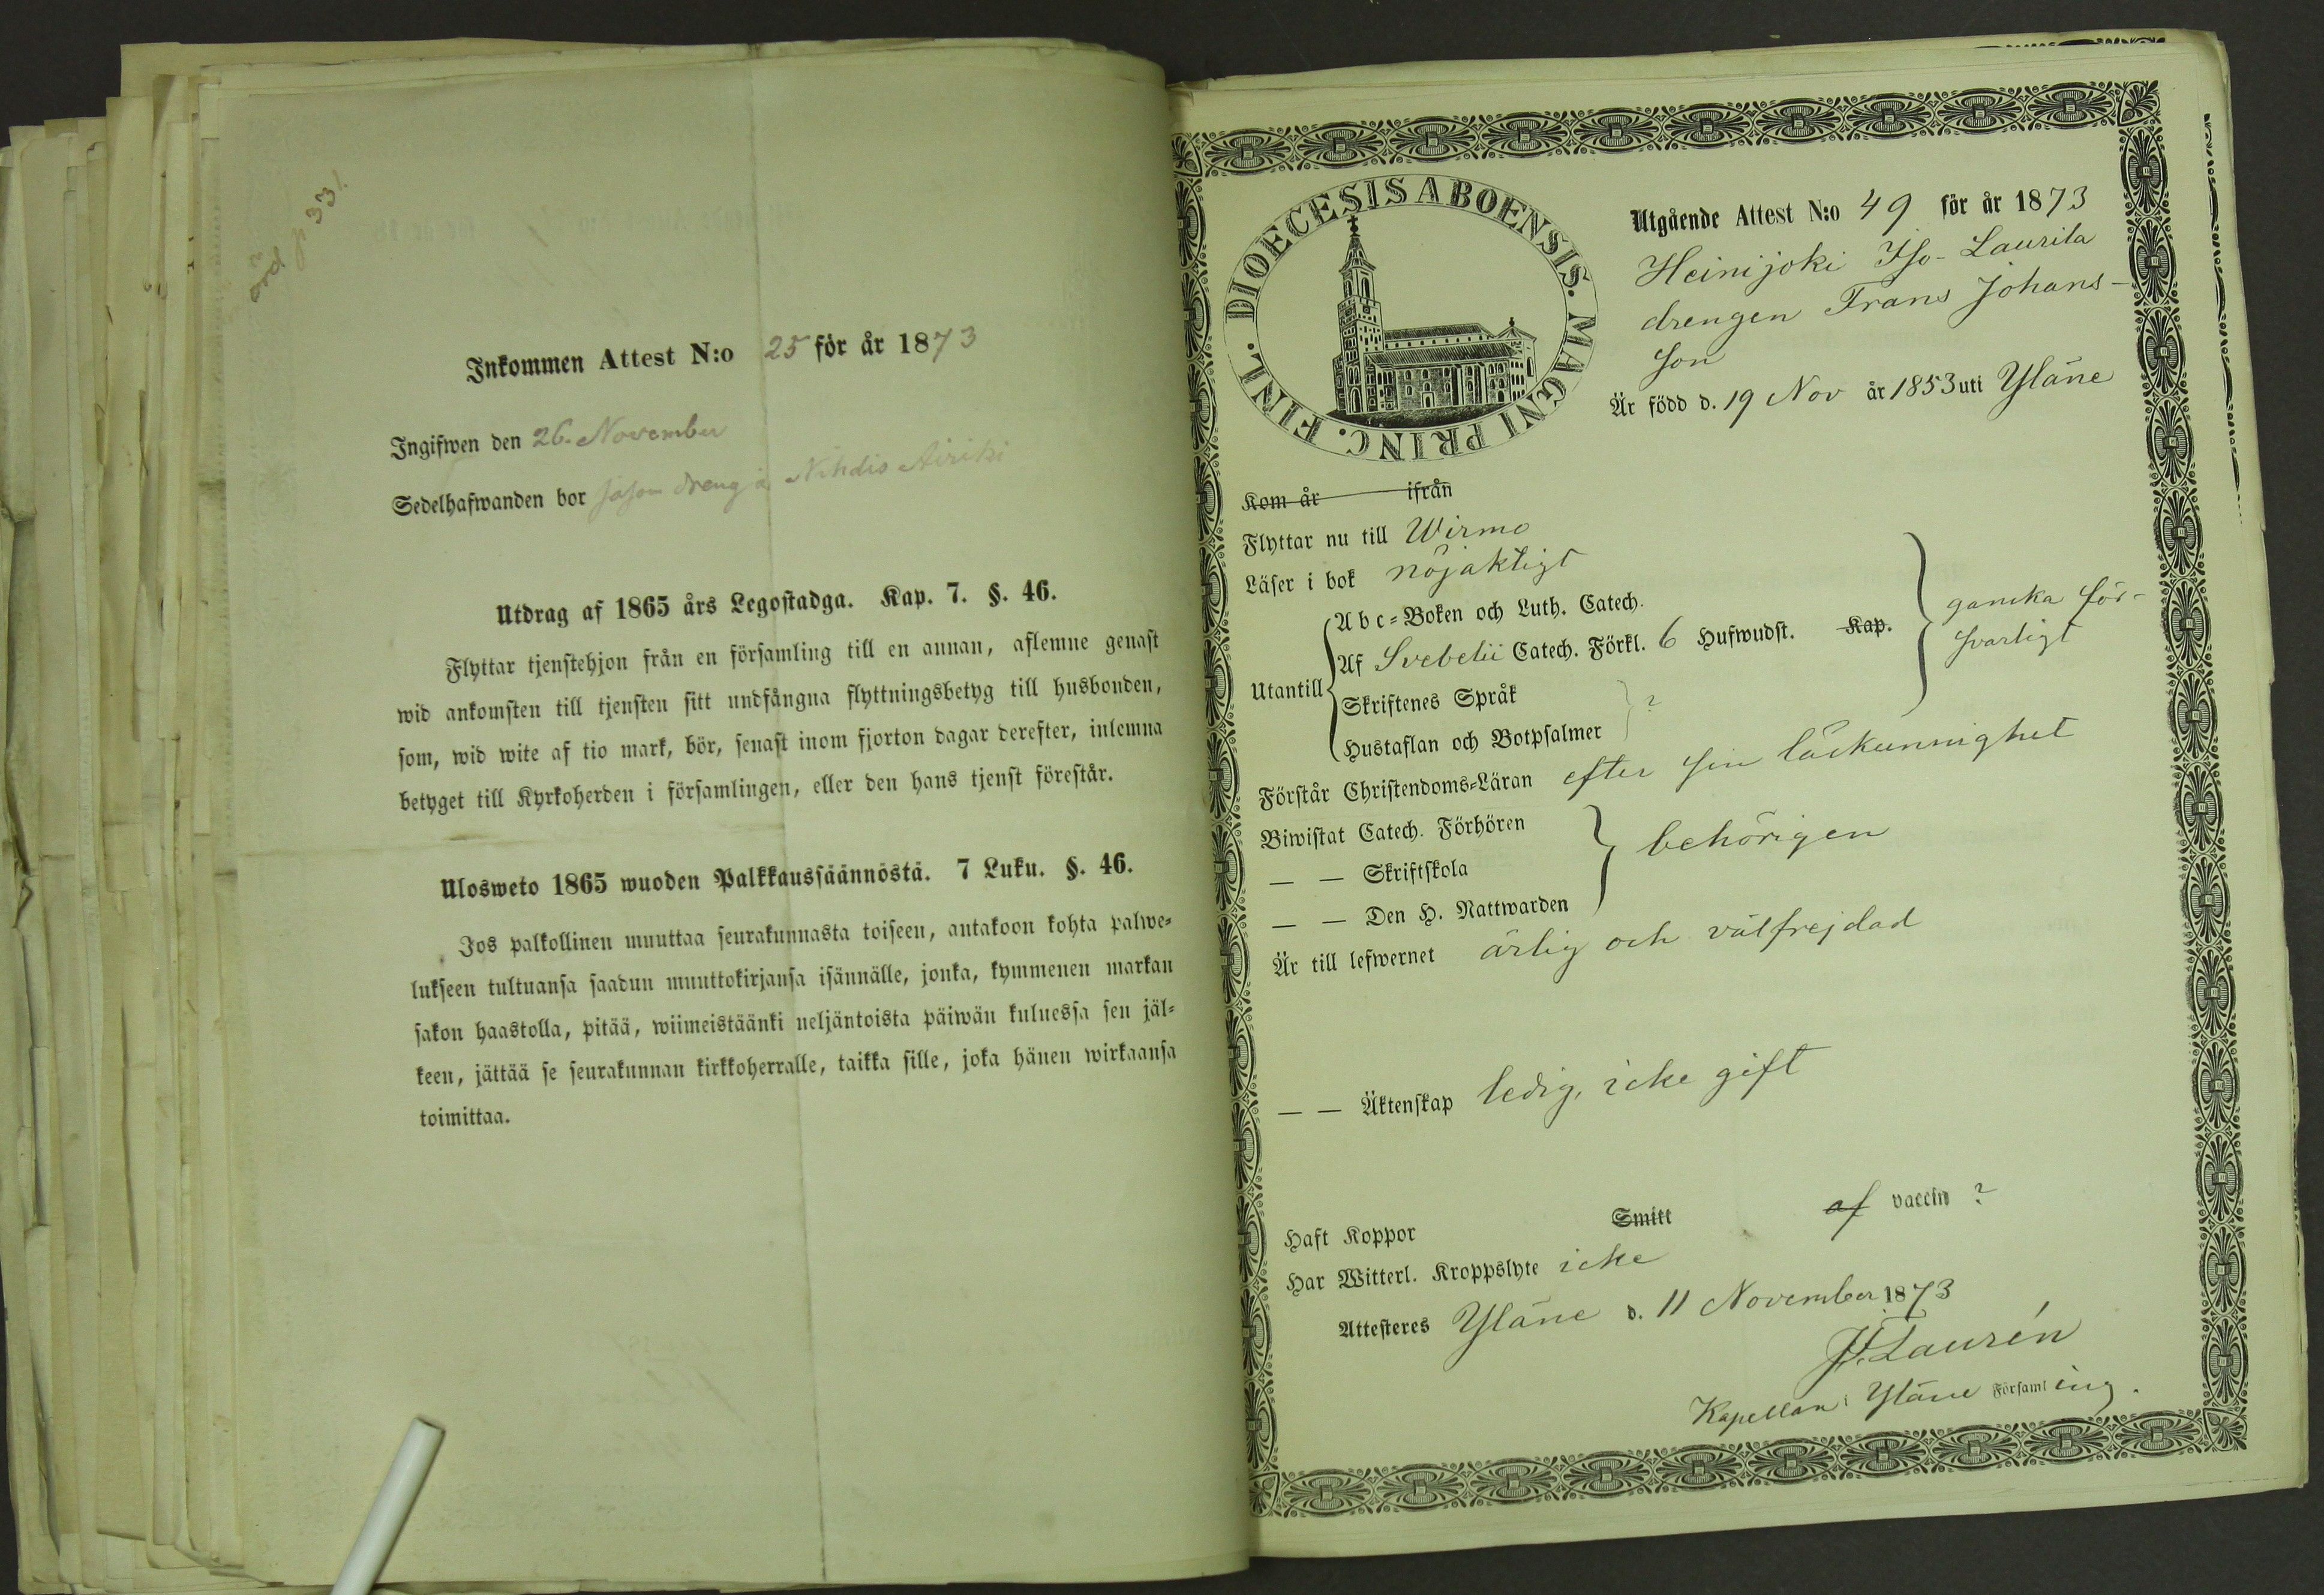 p 331.
Inkommen Attest N:o 25 för år 1873
Ingifwen den 26. November
Sedelhafwanden bor såsom dreng å Nihdis Airiki
Utdrag af 1865 års Legostadga. Kap. 7. §. 46.
Flyttar tjenstehjon från en församling till en annan, aflemne genast
wid ankomsten till tjensten sitt undfångna flyttningsbetyg till husbonden,
som, wid wite af tio mark, bör, senast inom fjorton dagar derefter, inlemna
betyget till Kyrkoherden i församlingen, eller den hans tjenst förestår.
Ulosweto 1865 wuoden Palkkaussäännöstä. 7 Luku. §. 46.
Jos palkollinen muuttaa seurakunnasta toiseen, antakoon kohta palwe-
lukseen tultuansa saadun muuttokirjansa isännälle, jonka, kymmenen markan
sakon haastolla, pitää, wiimeistäänki neljäntoista päiwän kuluessa sen jäl-
keen, jättää se seurakunnan kirkkoherralle, taikka sille, joka hänen wirkaansa
toimittaa.
DIOECESIS ABOENSIS. MAGNI PRINC. FINL.
Utgående Attest N:o 49 för år 1873
Heinijoki Iso-Laurila
drengen Frans Johans-
son
Är född d. 19 Nov år 1853 uti Yläne
Kom år ifrån
Flyttar nu till Wirmo
Läser i bok nöjaktigt
Utantill
Abc-Boken och Luth. Catech.
Af Svebelii Catech. Förkl. 6 Hufwudst. Kap.
Skriftenes Språk
Hustaflan och Botpsalmer
?
ganska för-
svarligt
Förstår Christendoms-Läran efter sin läskunnighet
Biwistat Catech. Förhören
— — Skriftskola
— — Den H. Nattwarden
behörigen
Är till lefwernet ärlig och välfrejdad
— — Äktenskap ledig, icke gift
Haft Koppor Smitt af vaccin ?
Har Witterl. Kroppslyte icke
Attesteres Yläne d. 11 November 1873
J. Laurén
Kapellan i Yläne Församling.